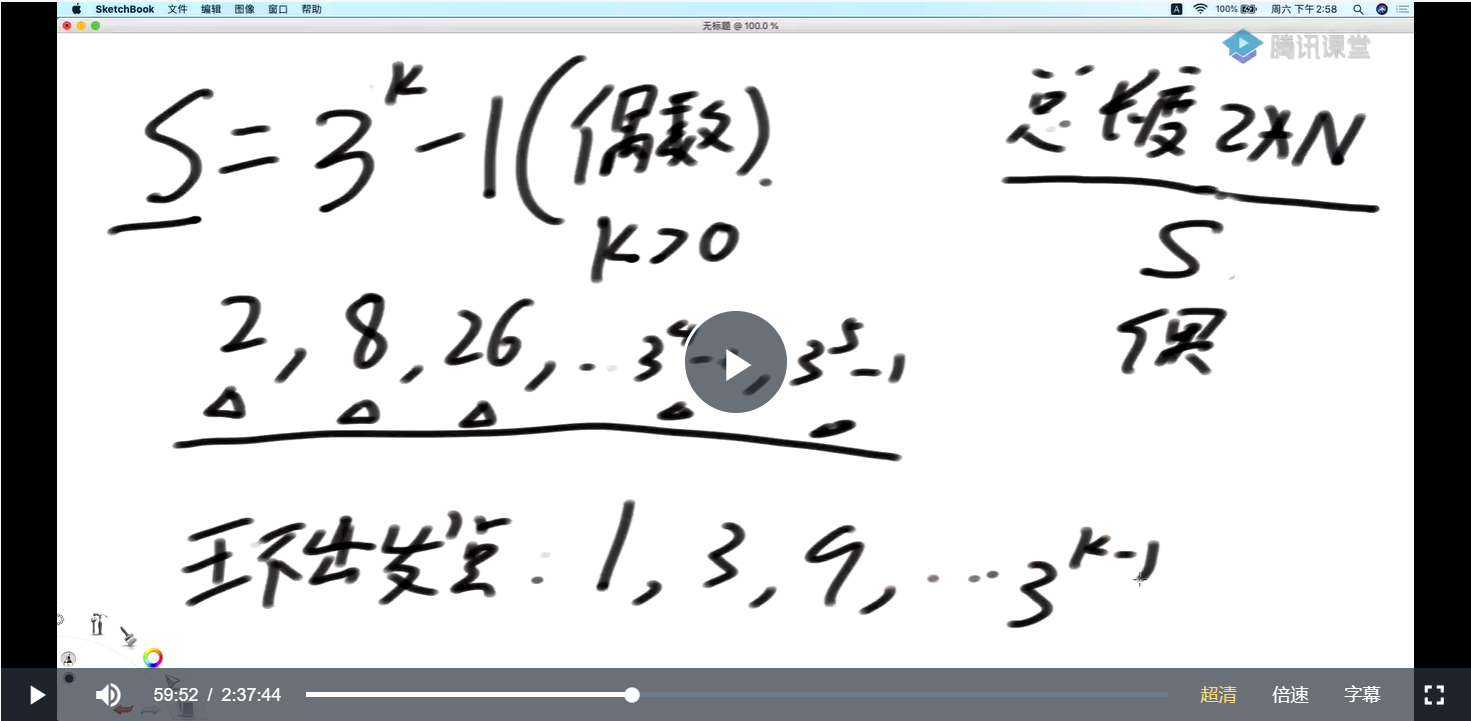 SketchBook 文件 编辑 图像 窗口 帮助 100% 周六 下午2:58
无标题 @ 100.0 %
腾讯课堂
S=3^k-1(偶数).
k>0
总长度2*N
S
偶
2, 8, 26, ...3^4-1, 3^5-1
环出发点: 1, 3, 9, ...3^k-1
59:52 / 2:37:44 超清 倍速 字幕